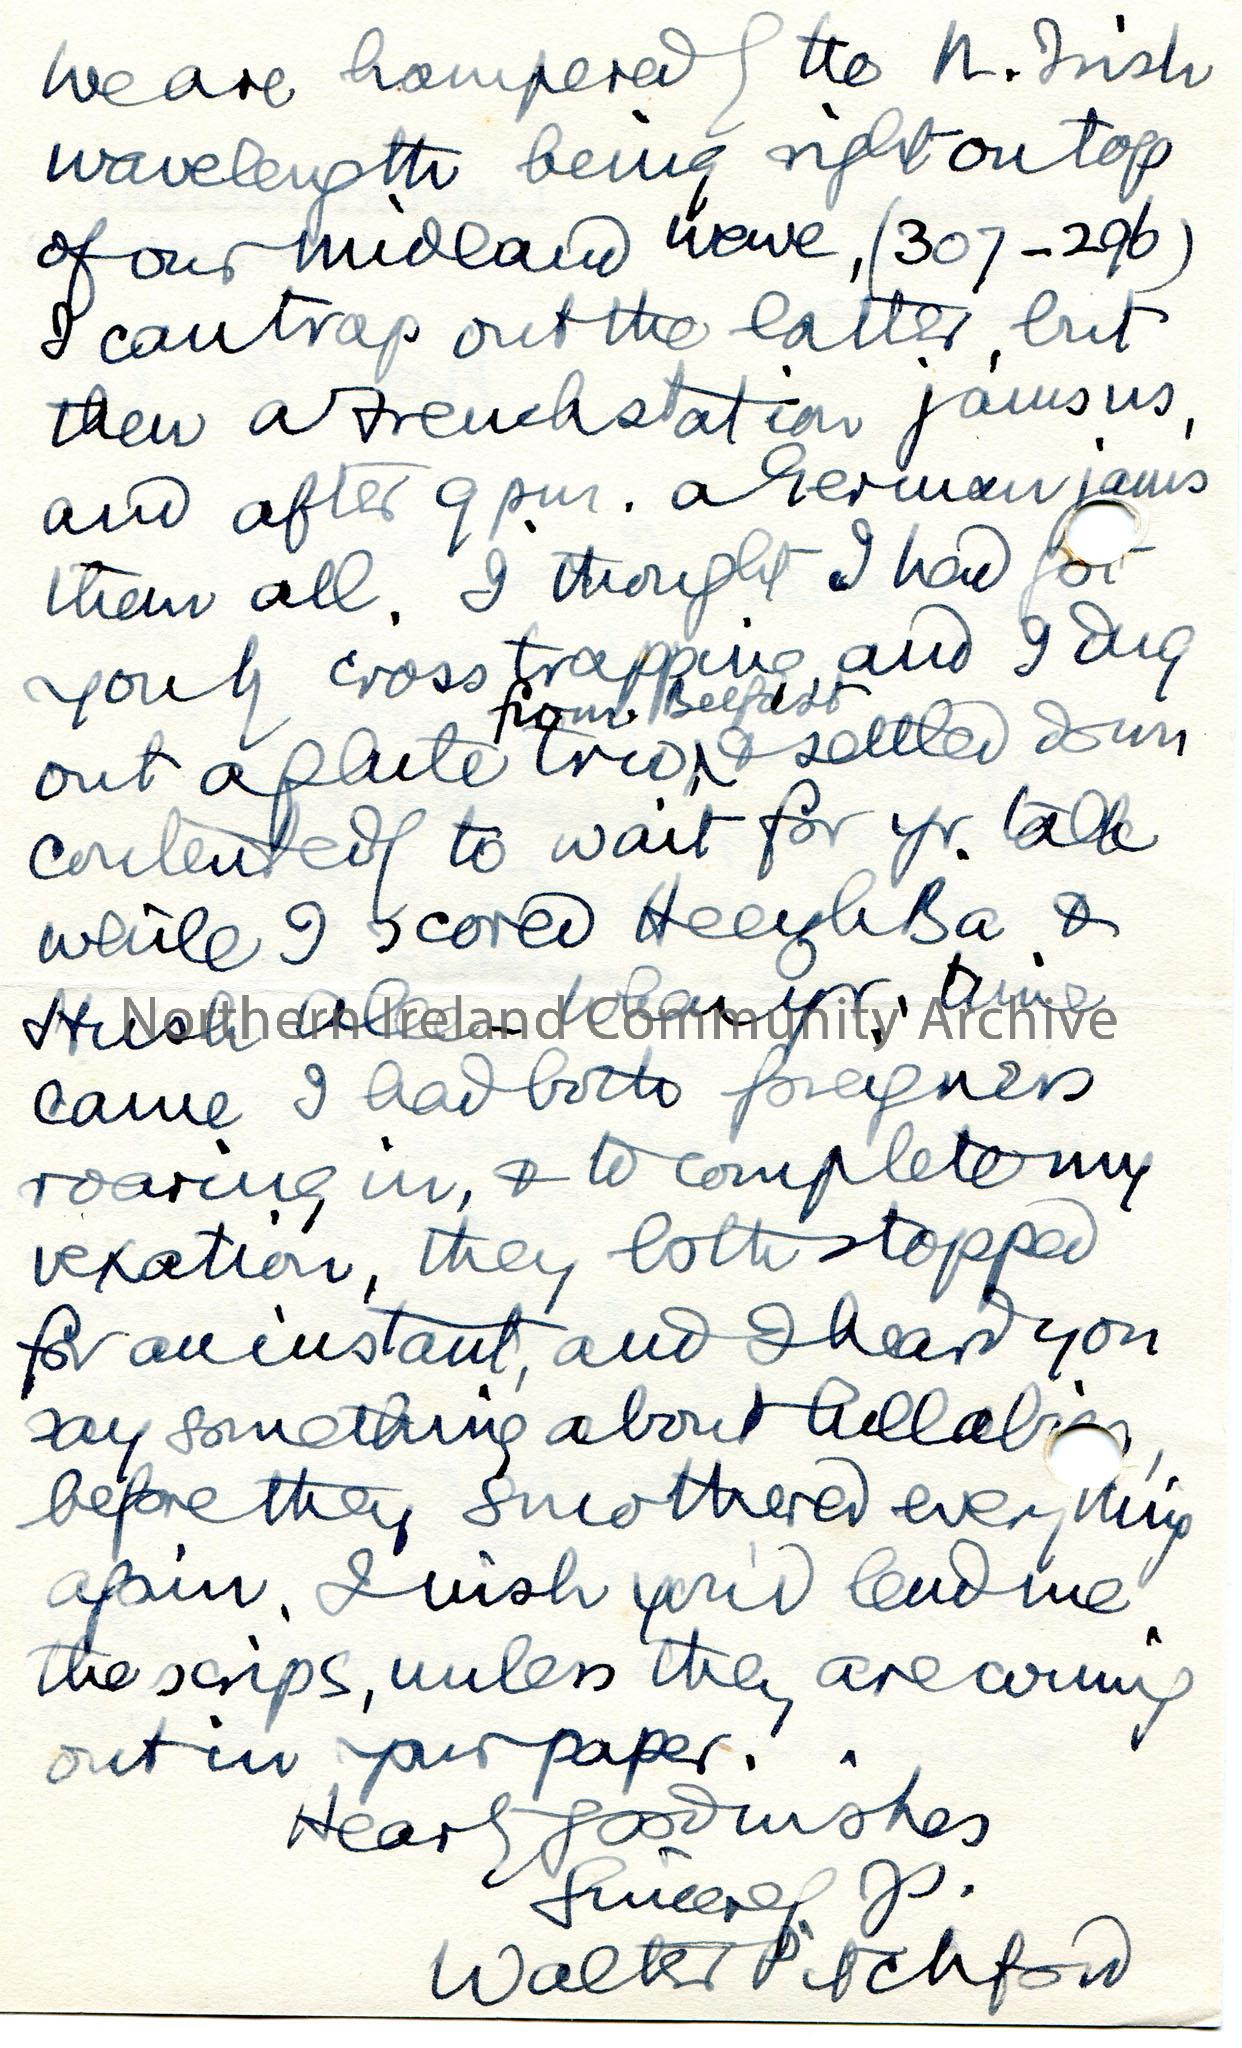 We are hampered by the N. Irish
wavelength being right on top
of our midland wave, (307-296)
I can trap out the latter, but
then a French station jams us,
and after 9 p.m. a German jams
them all. I thought I had got
you by cross trapping and I dug
out a flute trio, from Belfast & settled down
contentedly to wait for yr. talk
while I scored Heegh Ba &
Hush when yr. time
came I had both foreigners
roaring in, & to complete my
vexation, they both stopped
for an instant, and I heard you
say something about lullabies,
before they smothered everything
again. I wish you'd lend me
the scrips, unless they are coming
out in your paper.
Hearty good wishes
Sincerely Ys.
Walter Pitchford
Northern Ireland Community Archive